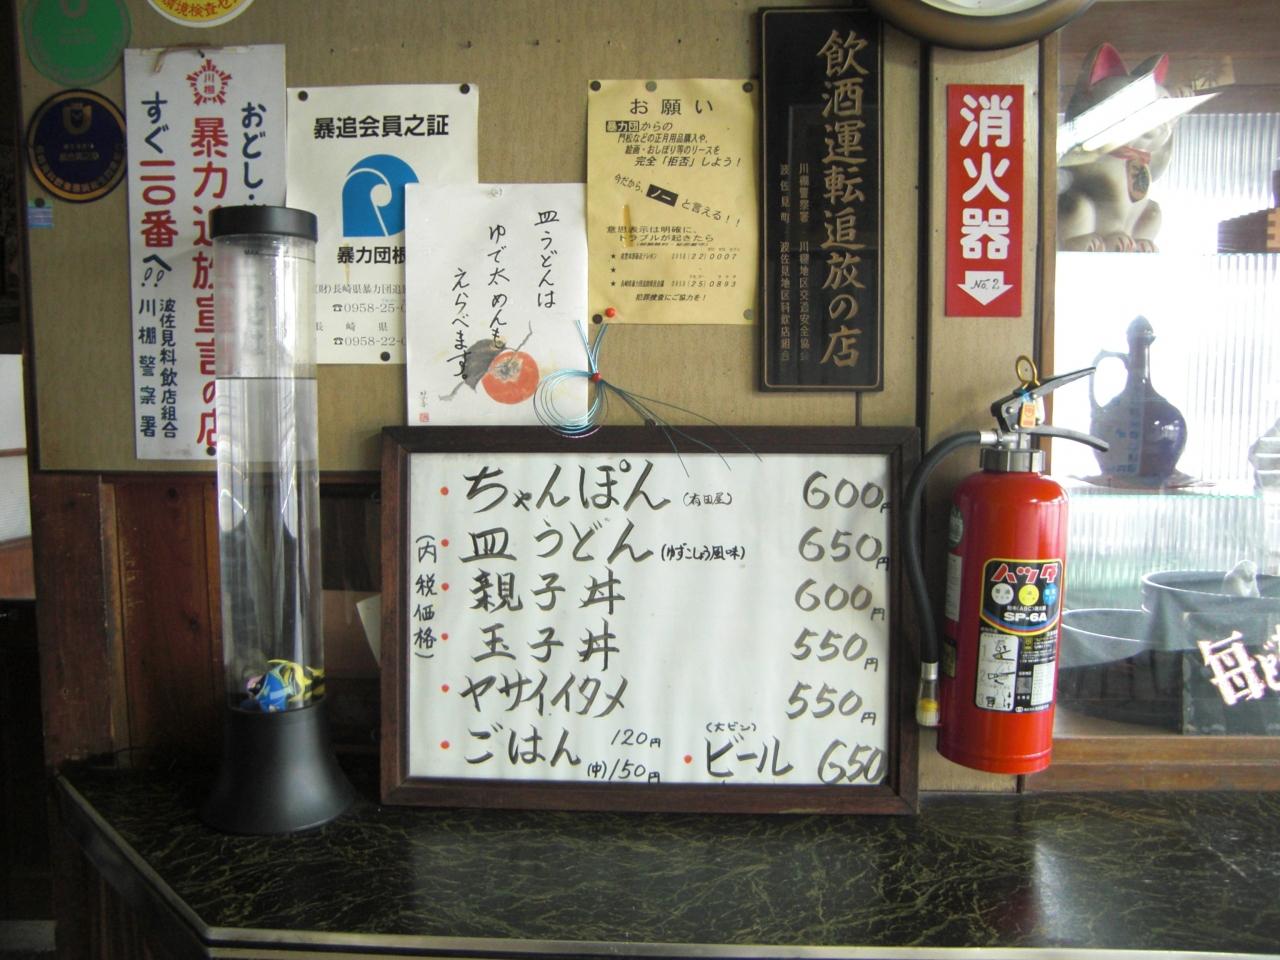 おどし・
暴力追放宣言の店
すぐ一一〇番へ!!
波佐見料飲店組合
川棚警察署
川棚
暴追会員之証
暴力団根
(財)長崎県暴力団追
☎0958-25-0
長崎県
☎0958-22-0
皿うどんは
ゆで太めんも
えらべます。
お願い
暴力団からの
門松などの正月用品購入や、
絵画・おしぼり等のリースを
完全「拒否」しよう!
今だから、ノーと言える!!
意思表示は明確に、
トラブルが起きたら
0958(22)0007
0958(25)0893
犯罪捜査にご協力を!
飲酒運転追放の店
川棚警察署 川棚地区交通安全協会
波佐見町 波佐見地区料飲店組合
消火器
No.2
(内税価格)
・ちゃんぽん(有田屋) 600円
・皿うどん(ゆずこしょう風味) 650円
・親子丼 600円
・玉子丼 550円
・ヤサイイタメ 550円
・ごはん 120円
(中)150円
(大ビン)
・ビール 650
ハツタ
粉末(ABC)消火器
SP-6A
毎ど